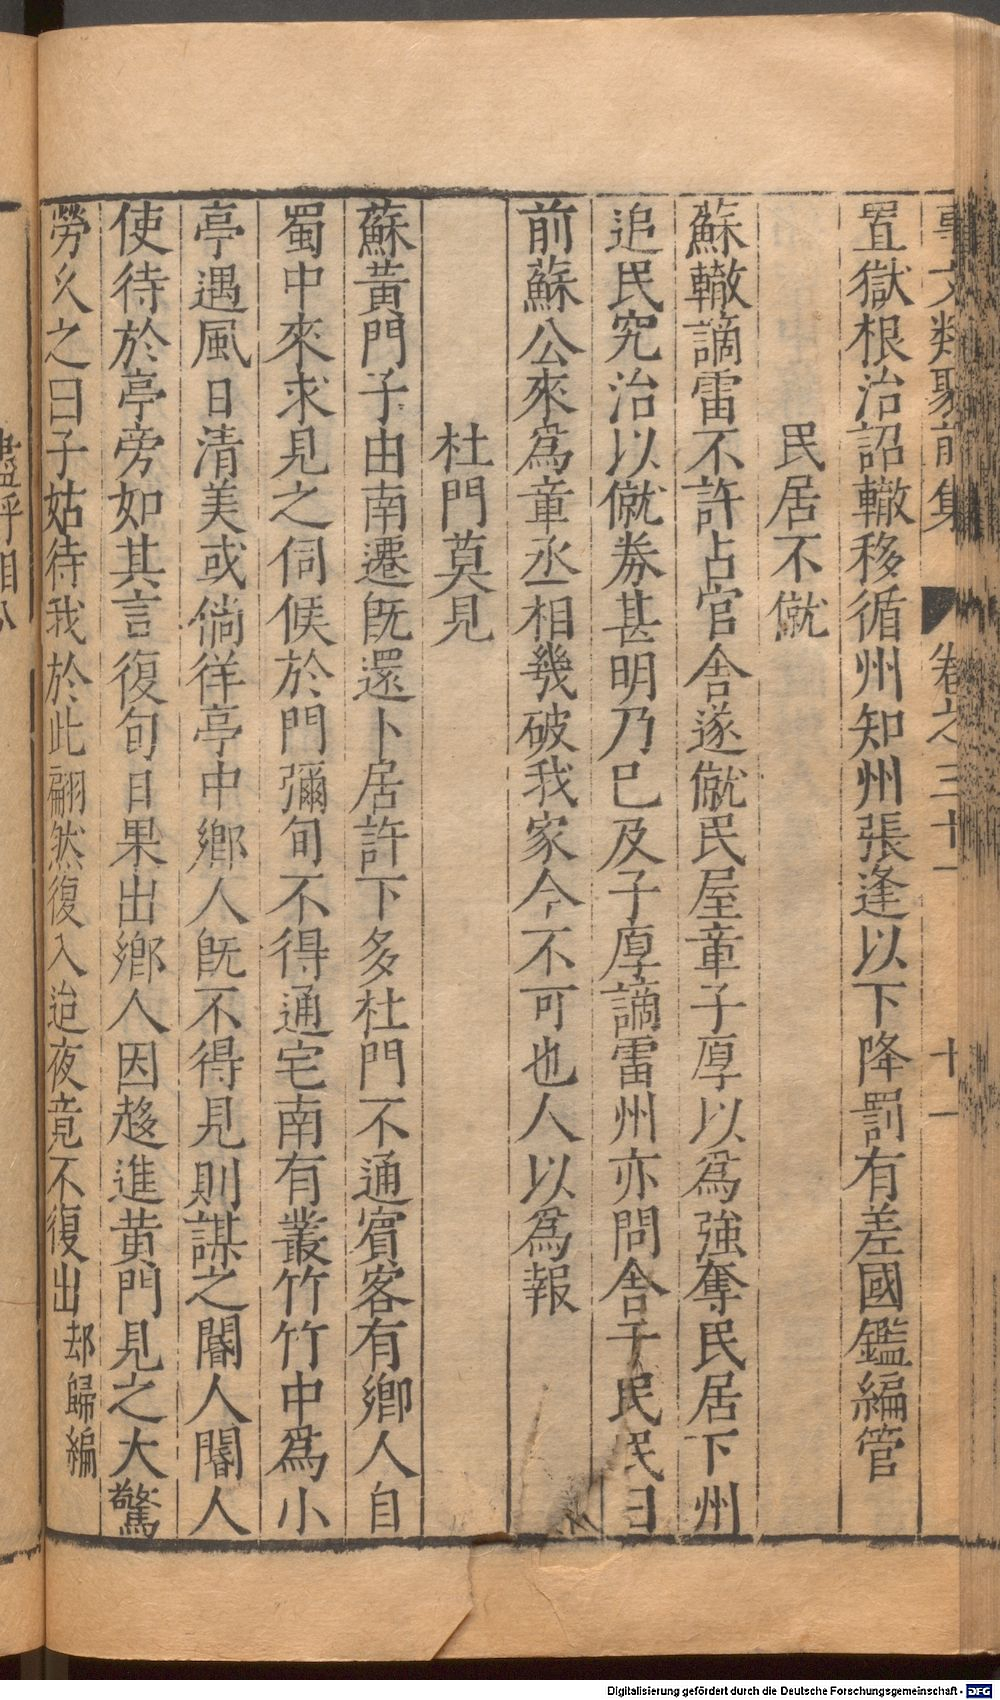 事文類聚前集 卷之三十一 十一
置獄根治詔轍移循州知州張逢以下降罰有差國鑑編管
民居不僦
蘇轍謫雷不許占官舍遂僦民屋章子厚以為強奪民居下州
追民究治以僦券甚明乃已及子厚謫雷州亦問舍于民民曰
前蘇公來為章丞相幾破我家今不可也人以為報
杜門莫見
蘇黃門子由南遷既還卜居許下多杜門不通賓客有鄉人自
蜀中來求見之伺候於門彌旬不得通宅南有叢竹竹中為小
亭遇風日清美或徜徉亭中鄉人既不得見則謀之閽人閽人
使待於亭旁如其言復旬日果出鄉人因趍進黃門見之大驚
勞久之曰子姑待我於此翩然復入迨夜竟不復出 却歸編
Digitalisierung gefördert durch die Deutsche Forschungsgemeinschaft - DFG